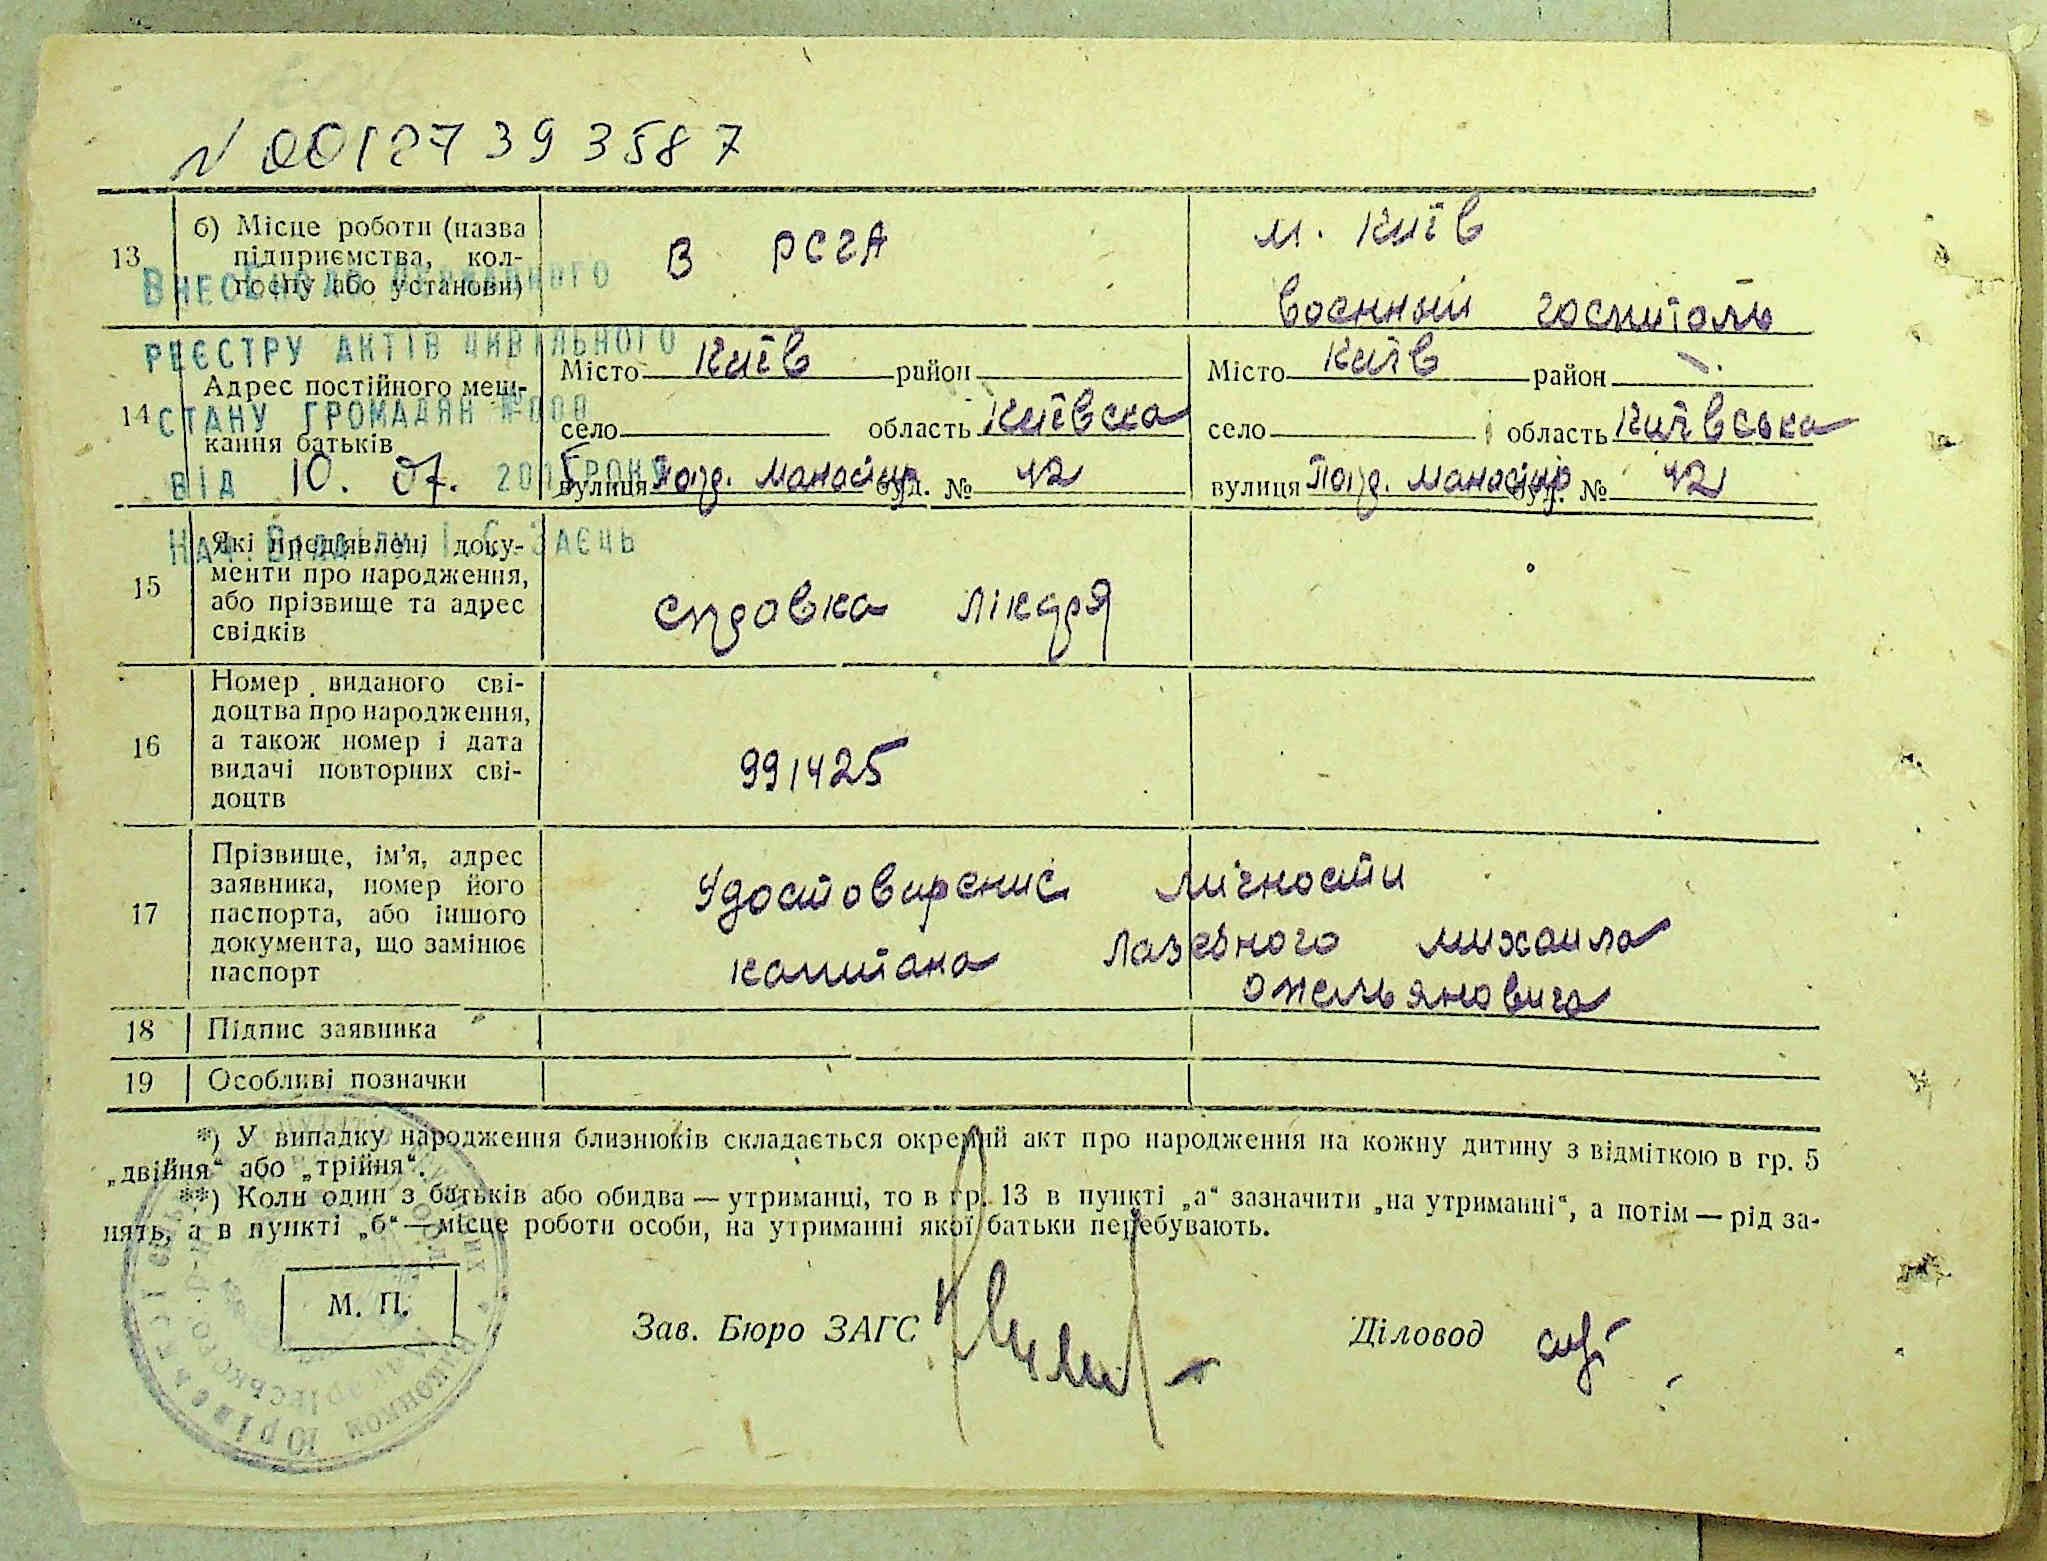 N 00127393587
13 б) Місце роботи (назва підприємства, колгоспу або установи)
В РСЧА
м. Київ
военный госпиталь
Внесено до Державного
реєстру актів цивільного
стану громадян №000
від 10. 07. 20 року
Нач. Відділу І. С. Заєць
14 Адрес постійного мешкання батьків
Місто Київ район
село область Київска
вулиця буд. № 12
Місто Київ район
село область Київська
вулиця буд. № 12
15 Які пред'явлені документи про народження, або прізвище та адрес свідків
справка лікаря
16 Номер виданого свідоцтва про народження, а також номер і дата видачі повторних свідоцтв
991425
17 Прізвище, ім'я, адрес заявника, номер його паспорта, або іншого документа, що замінює паспорт
Удостоверение личности
капитана Лазебного Михаила
Омельяновича
18 Підпис заявника
19 Особливі позначки
*) У випадку народження близнюків складається окремий акт про народження на кожну дитину з відміткою в гр. 5
„двійня“ або „трійня“.
**) Коли один з батьків або обидва — утриманці, то в гр. 13 в пункті „а“ зазначити „на утриманні“, а потім — рід за-
нять, а в пункті „б“ — місце роботи особи, на утриманні якої батьки перебувають.
М. П.
Зав. Бюро ЗАГС
Діловод